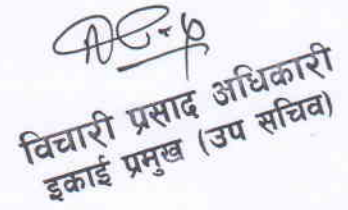 विचारी प्रसाद अधिकारी
इकाई प्रमुख (उप सचिव)